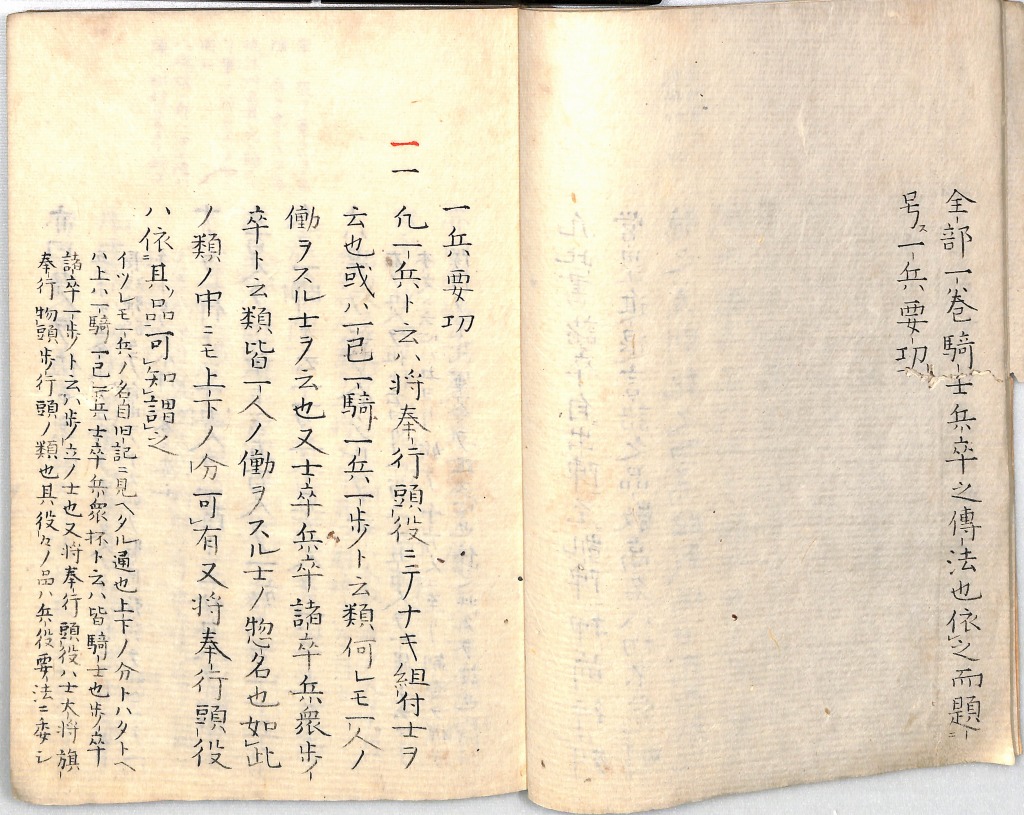 全部一巻騎士兵卒之傳法也依之而題
号ス一兵要功
一兵要功
一 凢一兵ト云ハ将奉行頭役ニテナキ組付士ヲ
云也或ハ一已一騎一兵一歩ト云類何レモ一人ノ
働ヲスル士ヲ云也又士卒兵卒諸卒兵衆歩ノ
卒ト云類皆一人ノ働ヲスル士ノ惣名也如此
ノ類ノ中ニモ上下ノ分可有又将奉行頭役
ハ依其品可知謂之
イツレモ一兵ノ名自旧記ニ見ヘタル通也上下ノ分トハタトヘ
ハ上ハ一騎一已云兵士卒兵衆抔ト云ハ皆騎士也歩ノ卒
諸卒一歩ノト云ハ歩ノ立ノ士也又将奉行頭役ハ士大将旗
奉行物頭歩行頭ノ類也其役々ノ品ハ兵役要法ニ委シ